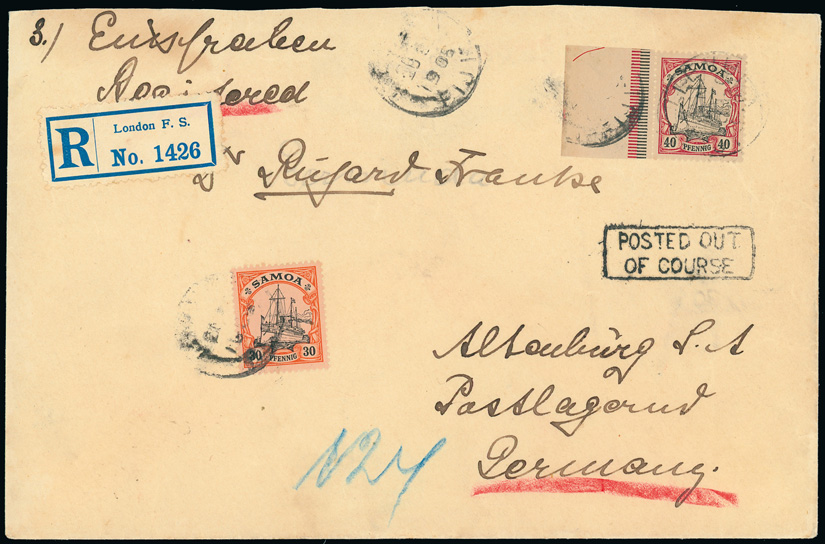 3.) Einschreiben
Registered
R London F. S.
No. 1426
Dr Rügard Franke
FIJI
SAMOA
40 PFENNIG 40
POSTED OUT
OF COURSE
SAMOA
30 PFENNIG 30
Altenburg S. A
Postlagernd
Germany.